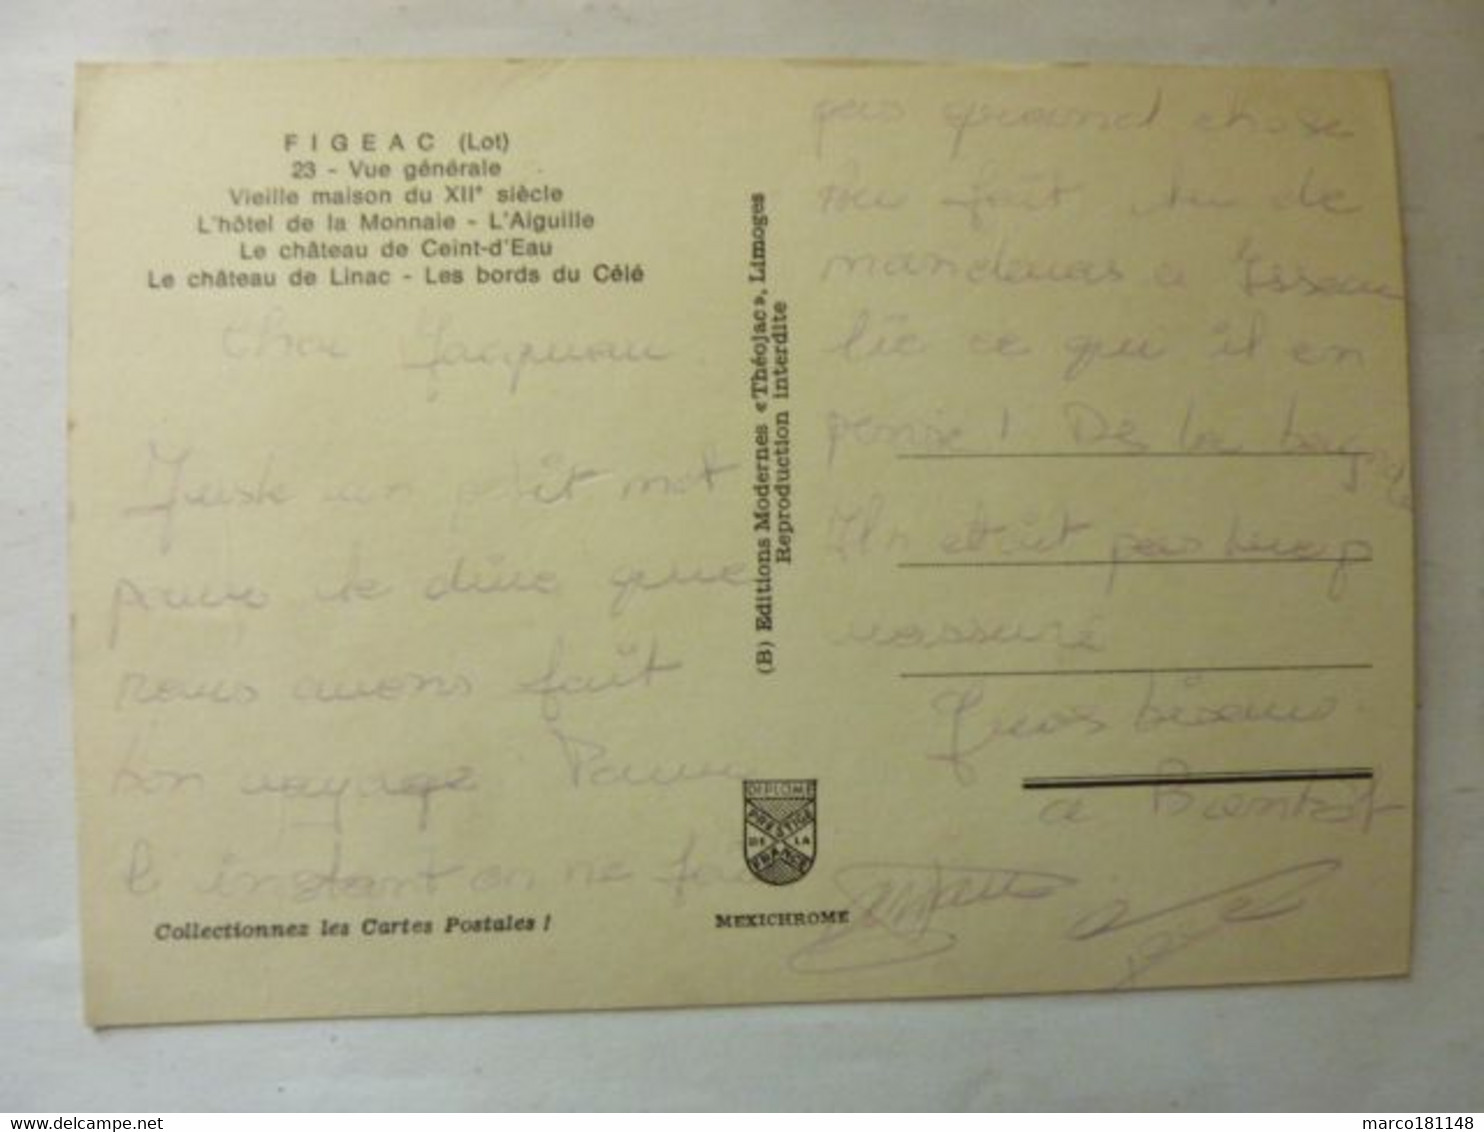 FIGEAC (Lot)
23 - Vue générale
Vieille maison du XIIe siècle
L'hôtel de la Monnaie - L'Aiguille
Le château de Ceint-d'Eau
Le château de Linac - Les bords du Célé
Juste un p'tit mot
pour te dire que
nous avons fait
bon voyage Pour
l'instant on ne fait
Collectionnez les Cartes Postales !
(B) Editions Modernes «Théojac», Limoges
Reproduction interdite
DIPLOME
PRESTIGE
DE LA
FRANCE
MEXICHROME
pas grand chose
au fait tu de
manderas a
lie ce qu'il en
pense !
était pas
rassuré
Gros bisous
a Bientôt
delcampe.net
marco181148